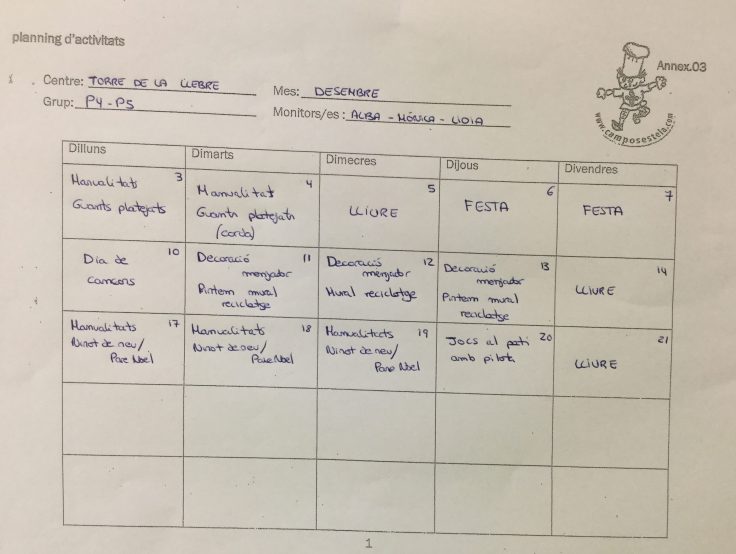 planning d'activitats
Annex.03
Centre: TORRE DE LA LLEBRE
Mes: DESEMBRE
Grup: P4-P5
Monitors/es: ALBA - MÓNICA - LIDIA
www.camposestela.com
Dilluns
Dimarts
Dimecres
Dijous
Divendres
3
Manualitats
Guants platejats
4
Manualitats
Guants platejats
(corda)
5
LLIURE
6
FESTA
7
FESTA
10
Dia de
cançons
11
Decoració
menjador
Pintem mural
reciclatge
12
Decoració
menjador
Mural reciclatge
13
Decoració
menjador
Pintem mural
reciclatge
14
LLIURE
17
Manualitats
Ninot de neu/
Pare Noel
18
Manualitats
Ninot de neu/
Pare Noel
19
Manualitats
Ninot de neu/
Pare Noel
20
Jocs al pati
amb pilota
21
LLIURE
1